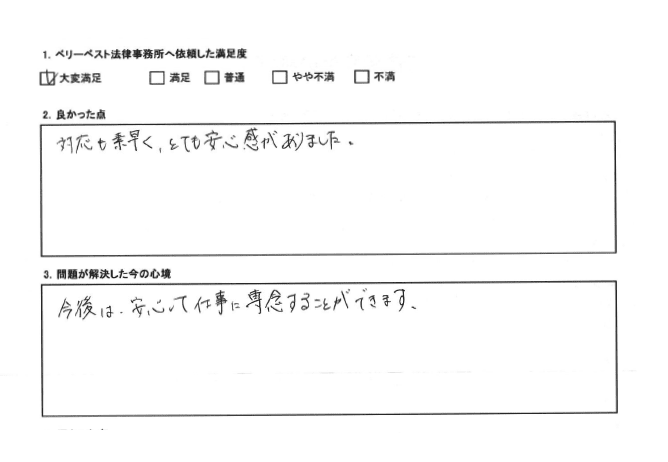 1. ベリーベスト法律事務所へ依頼した満足度
☑大変満足 □満足 □普通 □やや不満 □不満
2. 良かった点
対応も素早く、とても安心感がありました。
3. 問題が解決した今の心境
今後は、安心して仕事に専念することができます、